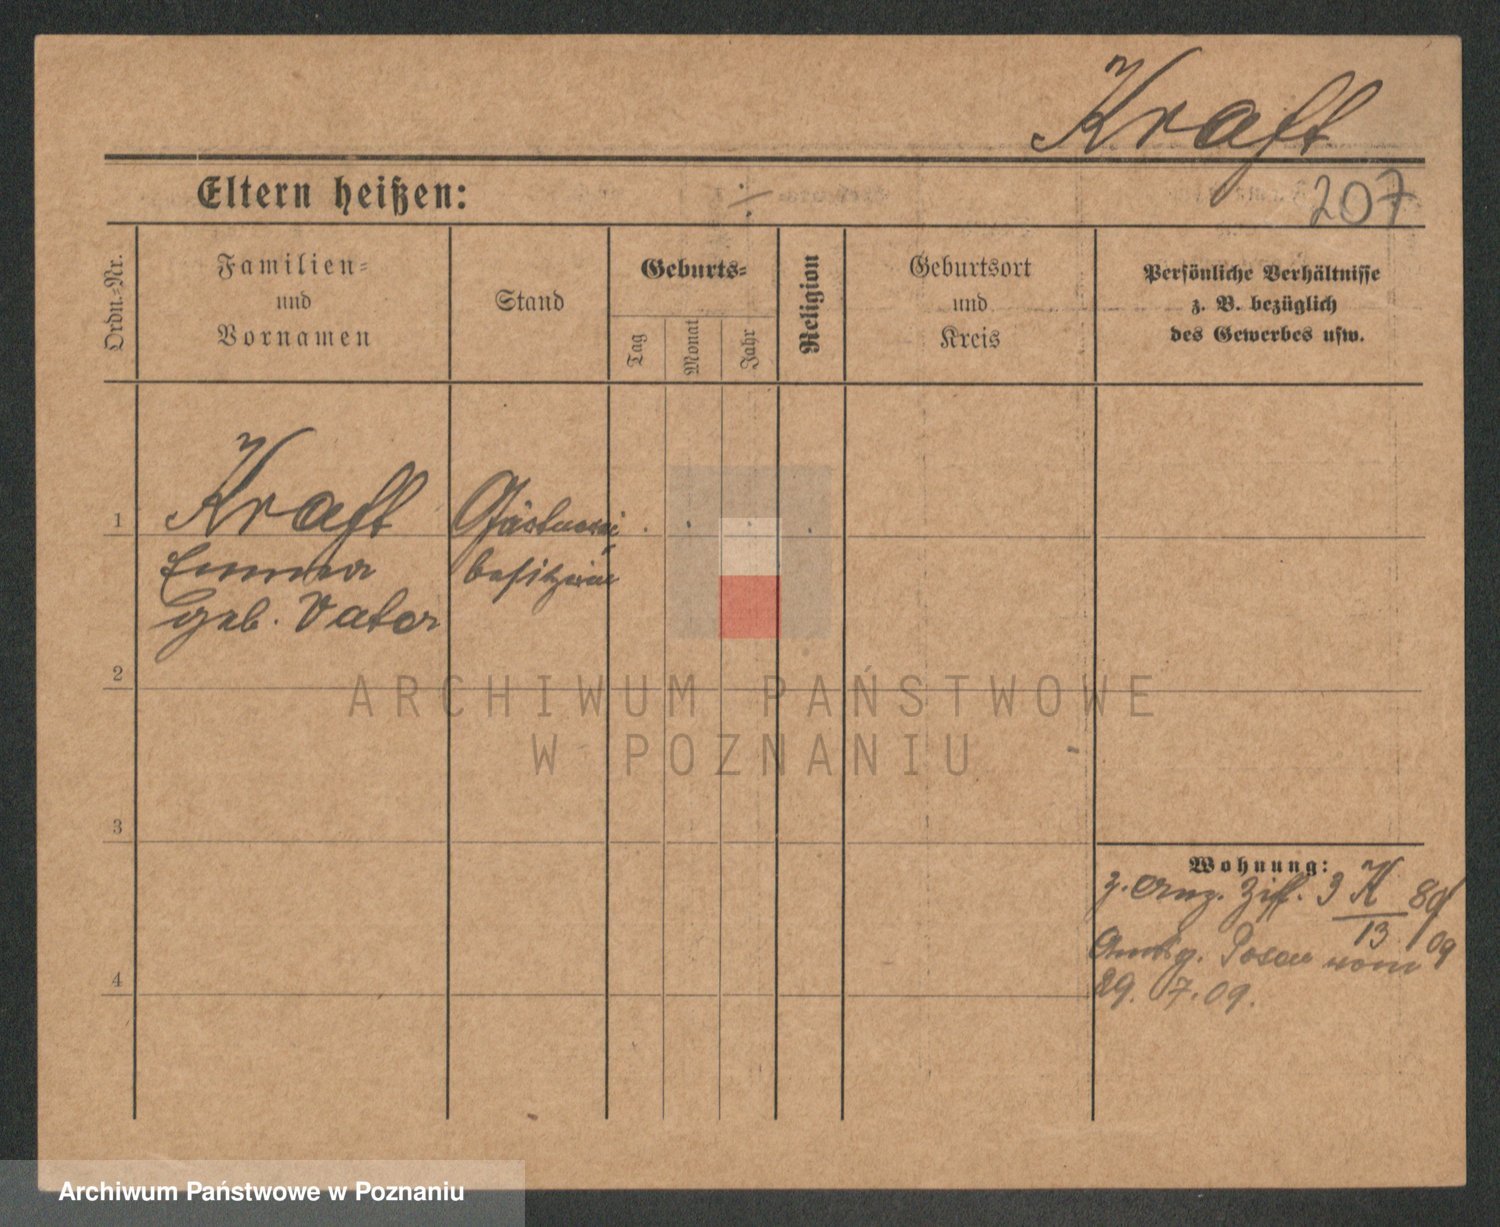 Kraft
Eltern heißen:
207
Ordn.-Nr.
Familien-
und
Vornamen
Stand
Geburts-
Tag
Monat
Jahr
Religion
Geburtsort
und
Kreis
Persönliche Verhältnisse
z. B. bezüglich
des Gewerbes usw.
1
Kraft
Emma
geb. Vater
besitzerin
2
3
4
Wohnung:
z. Anz. Ziff. 3 K
13
09
Posen vom
29. 7. 09.
ARCHIWUM PAŃSTWOWE
W POZNANIU
Archiwum Państwowe w Poznaniu